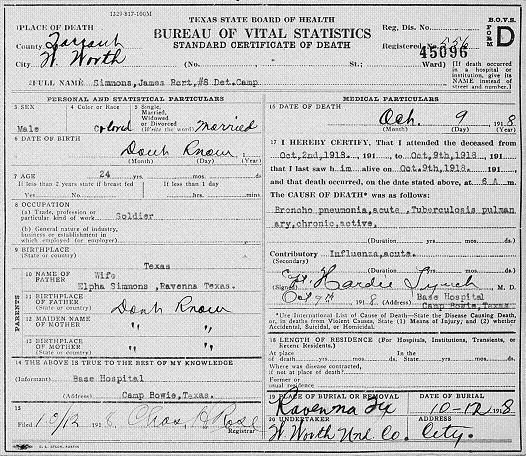 1329-817-100M
TEXAS STATE BOARD OF HEALTH
BUREAU OF VITAL STATISTICS
STANDARD CERTIFICATE OF DEATH
B.O.V.S. FORM D
PLACE OF DEATH
County Tarrant
City Ft. Worth
(No. St.; Ward)
Reg. Dis. No.
Registered No.
45096
[If death occurred in a hospital or institution, give its NAME instead of street and number.]
FULL NAME Simmons, James Bert, #8 Det. Camp
PERSONAL AND STATISTICAL PARTICULARS
3 SEX Male
4 Color or Race Colored
5 Single, Married, Widowed or Divorced (Write the word) Married
6 DATE OF BIRTH Dont Know
(Month) (Day) (Year)
7 AGE 24 yrs. mos. ds.
If less than 2 years state if breast fed
If less than 1 day
Yes No hrs. min.
8 OCCUPATION
(a) Trade, profession or particular kind of work Soldier
(b) General nature of industry, business or establishment in which employed (or employer)
9 BIRTHPLACE (State or country) Texas
10 NAME OF FATHER Wife Elpha Simmons, Ravenna Texas.
PARENTS
11 BIRTHPLACE OF FATHER (State or country) Dont Know
12 MAIDEN NAME OF MOTHER " "
13 BIRTHPLACE OF MOTHER (State or country) " "
14 THE ABOVE IS TRUE TO THE BEST OF MY KNOWLEDGE
(Informant) Base Hospital
(Address) Camp Bowie, Texas.
15
Filed 10/12 1918 Chas. A. Rose
Registrar
MEDICAL PARTICULARS
16 DATE OF DEATH
Oct. 9 1918
(Month) (Day) (Year)
17 I HEREBY CERTIFY, That I attended the deceased from
Oct, 2nd, 1918. 191 to Oct, 9th, 1918 191
that I last saw h im alive on Oct. 9th, 1918. 191
and that death occurred, on the date stated above, at 6 A m.
The CAUSE OF DEATH* was as follows:
Broncho pneumonia, acute, Tuberculosis pulmon
ary, chronic, active.
(Duration yrs. mos. ds.
Contributory Influenza, acute.
(Secondary)
(Duration yrs. mos. ds.
(Signed) Hardie Lynch M. D.
Oct 9th 1918 (Address) Base Hospital
Camp Bowie, Texas
*Use International List of Cause of Death—State the Disease Causing Death, or, in deaths from Violent Causes, State (1) Means of Injury; and (2) whether Accidental, Suicidal, or Homicidal.
18 LENGTH OF RESIDENCE (For Hospitals, Institutions, Transients, or Recent Residents.)
At place of death yrs. mos. ds. In the State yrs. mos. ds.
Where was disease contracted, if not at place of death?
Former or usual residence
19 PLACE OF BURIAL OR REMOVAL Ravenna Tex
DATE OF BURIAL 10-12 1918
20 UNDERTAKER Ft. Worth Und. Co.
ADDRESS City.